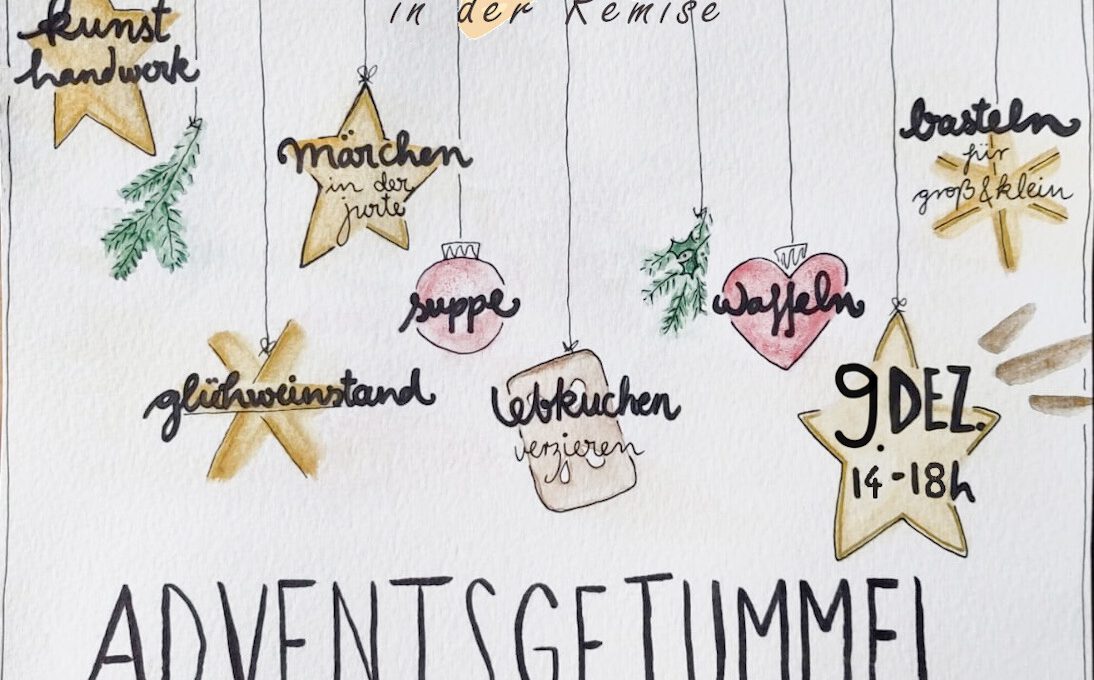 in der Remise
kunst
handwerk
märchen
in der
jurte
basteln
für
groß & klein
suppe
waffeln
glühweinstand
lebkuchen
verzieren
9. DEZ.
14-18h
ADVENTSGETUMMEL